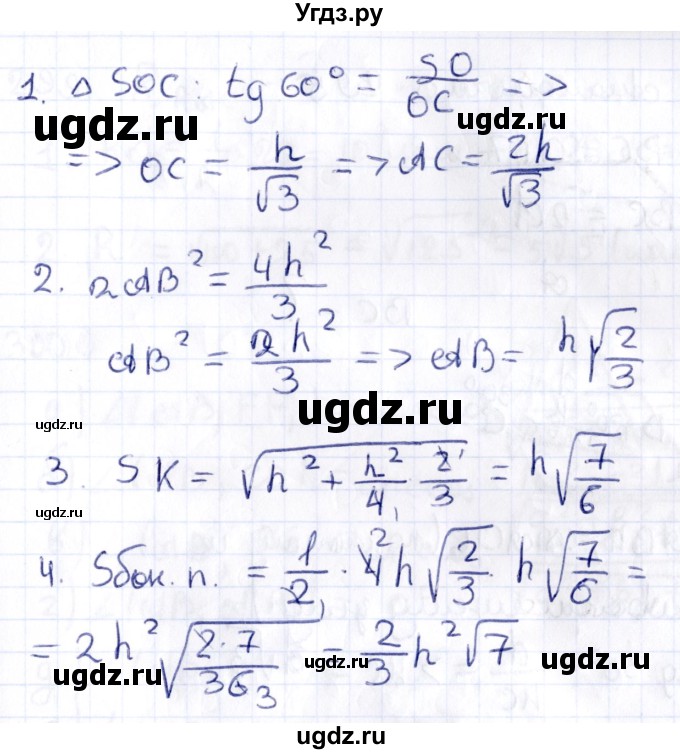 Угдз.ру
1. △ SOC: tg 60° = SO/OC =>
ugdz.ru
ugdz.ru
=> OC = h/√3 => AC = 2h/√3
2. 2AB² = 4h²/3
AB² = 2h²/3 => AB = h√(2/3)
ugdz.ru
ugdz.ru
ugdz.ru
3. SK = √(h² + h²/4 · 2/3) = h√(7/6)
ugdz.ru
4. Sбок. п. = 1/2 · 4² h√(2/3) · h√(7/6) =
= 2h² √(2·7/36 3) = 2/3 h² √7
ugdz.ru
ugdz.ru
ugdz.ru
ugdz.ru